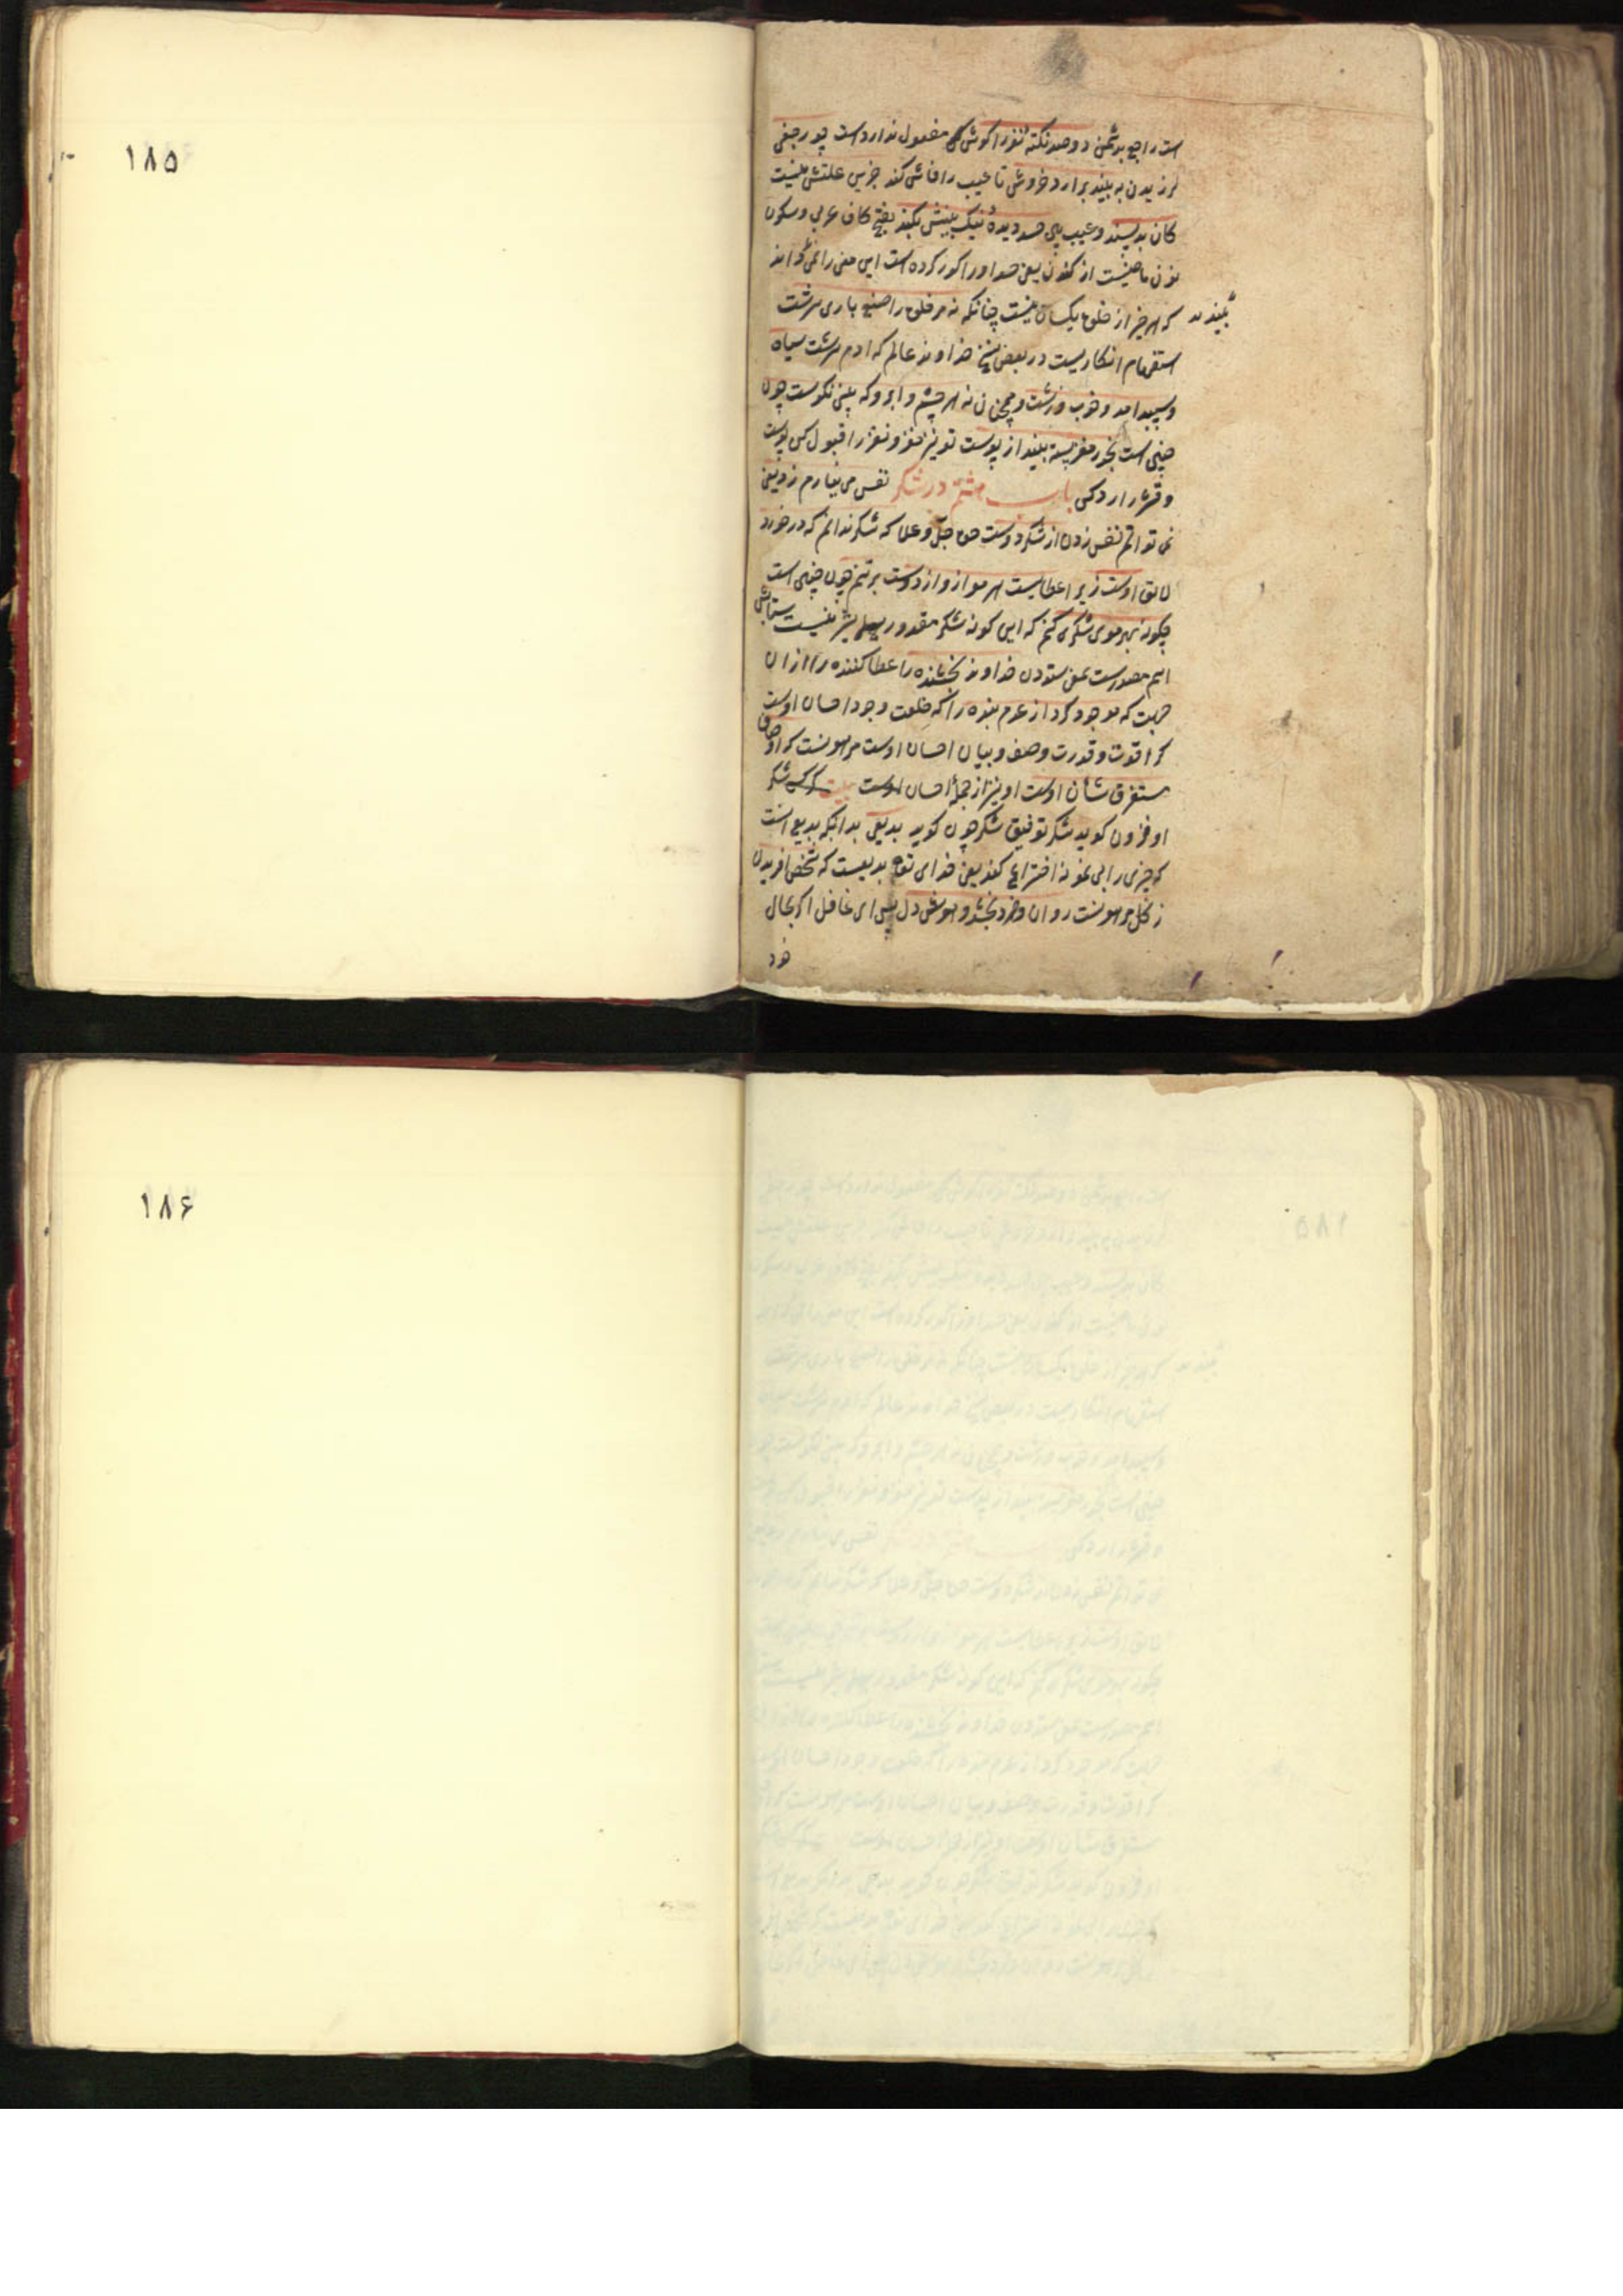 است راجع بدشمن دوصد نکته نغز را کوش کی مفعول ندارداست چو رحفی
لرزیدن به بیند برارد خروشی تا عیب را فاش کند جزین علتش نیست
کان بدپسند و عیب پی حسد دیدهٔ نیک بینش بکند بفتح کاف عربی و سکون
نون ماضیست از کندن یعنی حسد اورا کور کرده است این معنی را نمی داند
که هر چیز از خلق یکسان نیست چنانکه نه مر خلق را صنع باری سرشت
بیند
استفهام انکاریست در بعض نسخ خداوند عالم که ادم سرشت سیاه
و سپید امد و خوب و زشت و همچنان نه هر چشم و ابرو که بینی نکوست چون
چنین است بخور مغز پسته بینداز پوست تو نیز مغز و نغز را قبول کن پوست
و قشر را رد کن باب هشتم در شکر نفس می نیارم زد یعنی
نمی توانم نفس زدن از شکر دوست حق جل و علا که شکر ندانم که در خورد
لایق اوست زیرا عطایست هر مو ازو از دوست بر تنم چون چنین است
چکونه بهر موی شکری کنم که این کونه شکر مقدور بشر نیست ستایش
اسم مصدرست بمعنی ستودن خداوند بخشنده را عطا کننده را از ان
جهت که موجود کرد از عدم بنده را که خلعت وجود احسان اوست
کرا قوت و قدرت وصف و بیان احسان اوست مرهونست که اوصاف
مستغرق شان اوست او نیز از جمله احسان اوست بیت کر کسی شکر
او فزون کوید شکر توفیق شکر چون کوید بدیعی بدانکه بدیع انست
که چیزی را بی نمونه اختراع کند یعنی خدای تعالی بدیعست که شخص افریدن
ز کل مرهونست روان و خرد بخشد و هوش دل پس ای غافل اکر بحال
خود
۱۸۵
۱۸۶